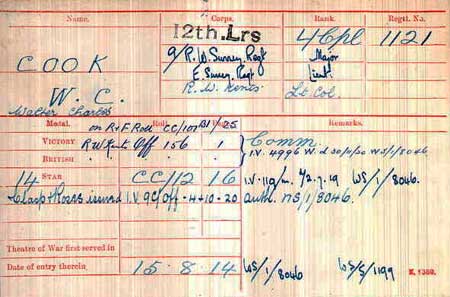 Name. Corps. Rank. Regtl. No.
12th. Lrs 4/Cpl 1121
COOK 9/R. W. Surrey Regt Major
E. Surrey. Regt Lieut
W. C. R. W. Kents Lt Col.
Walter Charles
Medal. Roll. Page. Remarks.
on R+F Roll CC/107 B1/25
VICTORY R W Kent Off 156 1 Comm.
BRITISH " " " I.V. 4996 W. d 30/11/20 WS/1/8046
14 STAR CC/1/2 16 I.V. 119/m. 4/2.7.19 WS/1/8046.
Clasp & Roses issued I.V. 9C/Off -4+10-20 auth. NS/1/8046.
Theatre of War first served in
Date of entry therein 15-8-14 WS/1/8046 WS/5/1199
K. 1380.